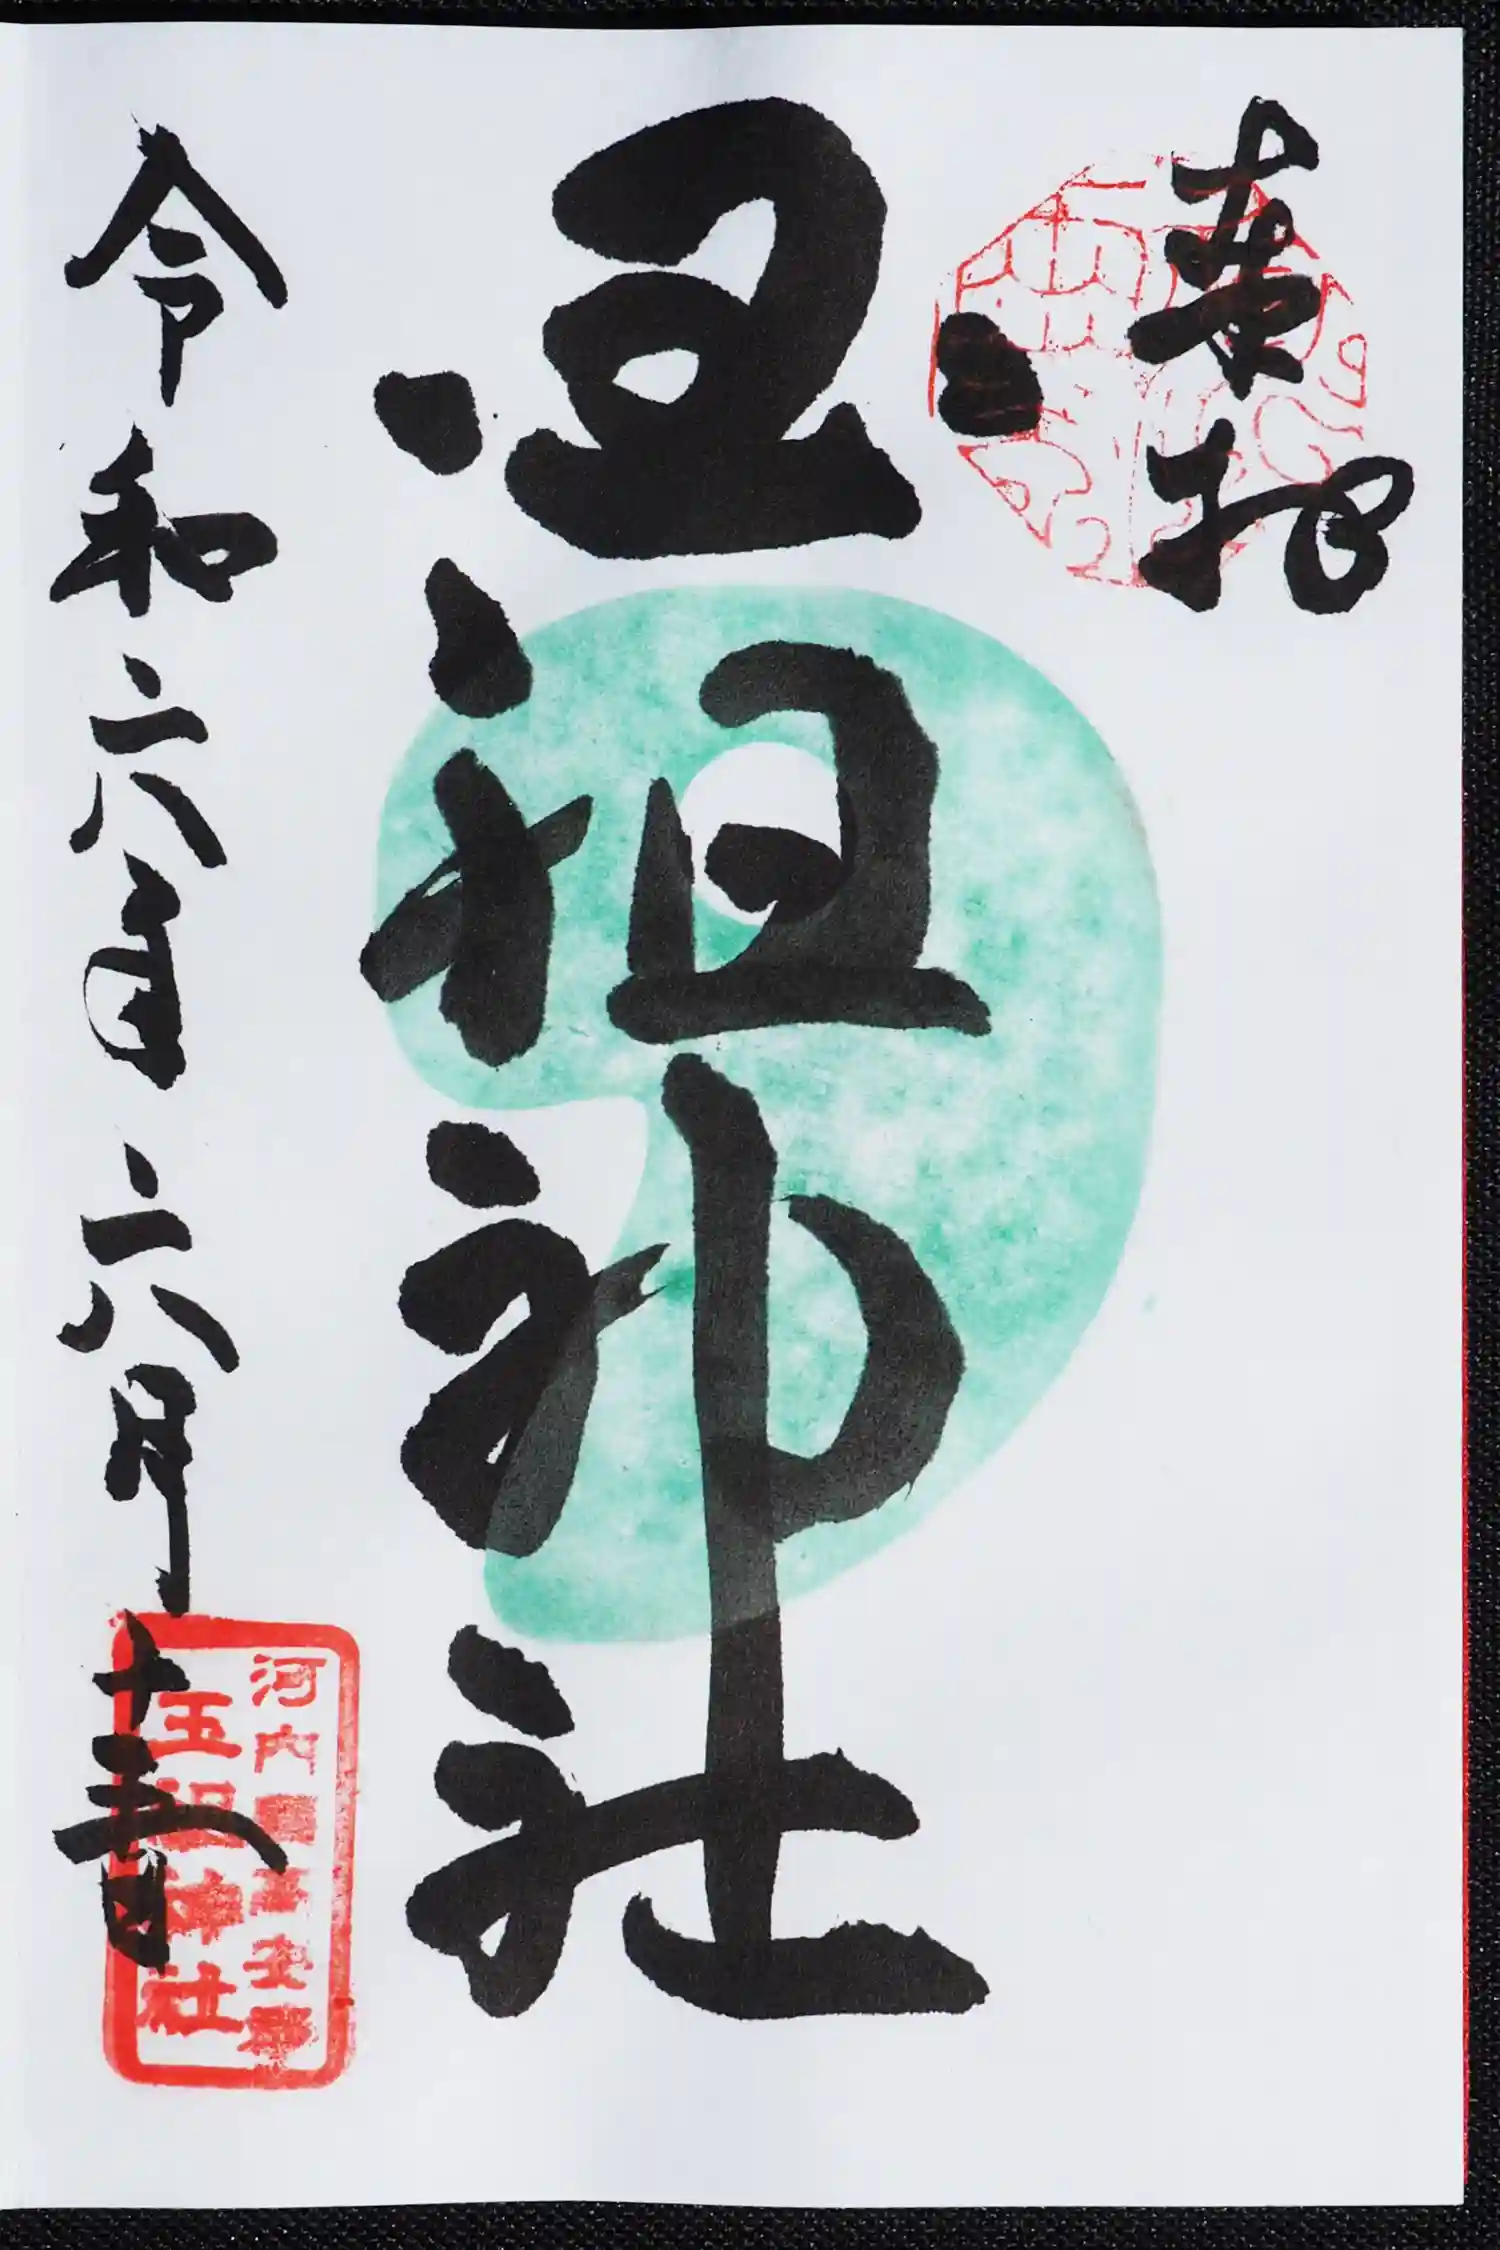 奉拝
玉祖神社
令和六年六月十五日
河内國高安郡
玉祖神社